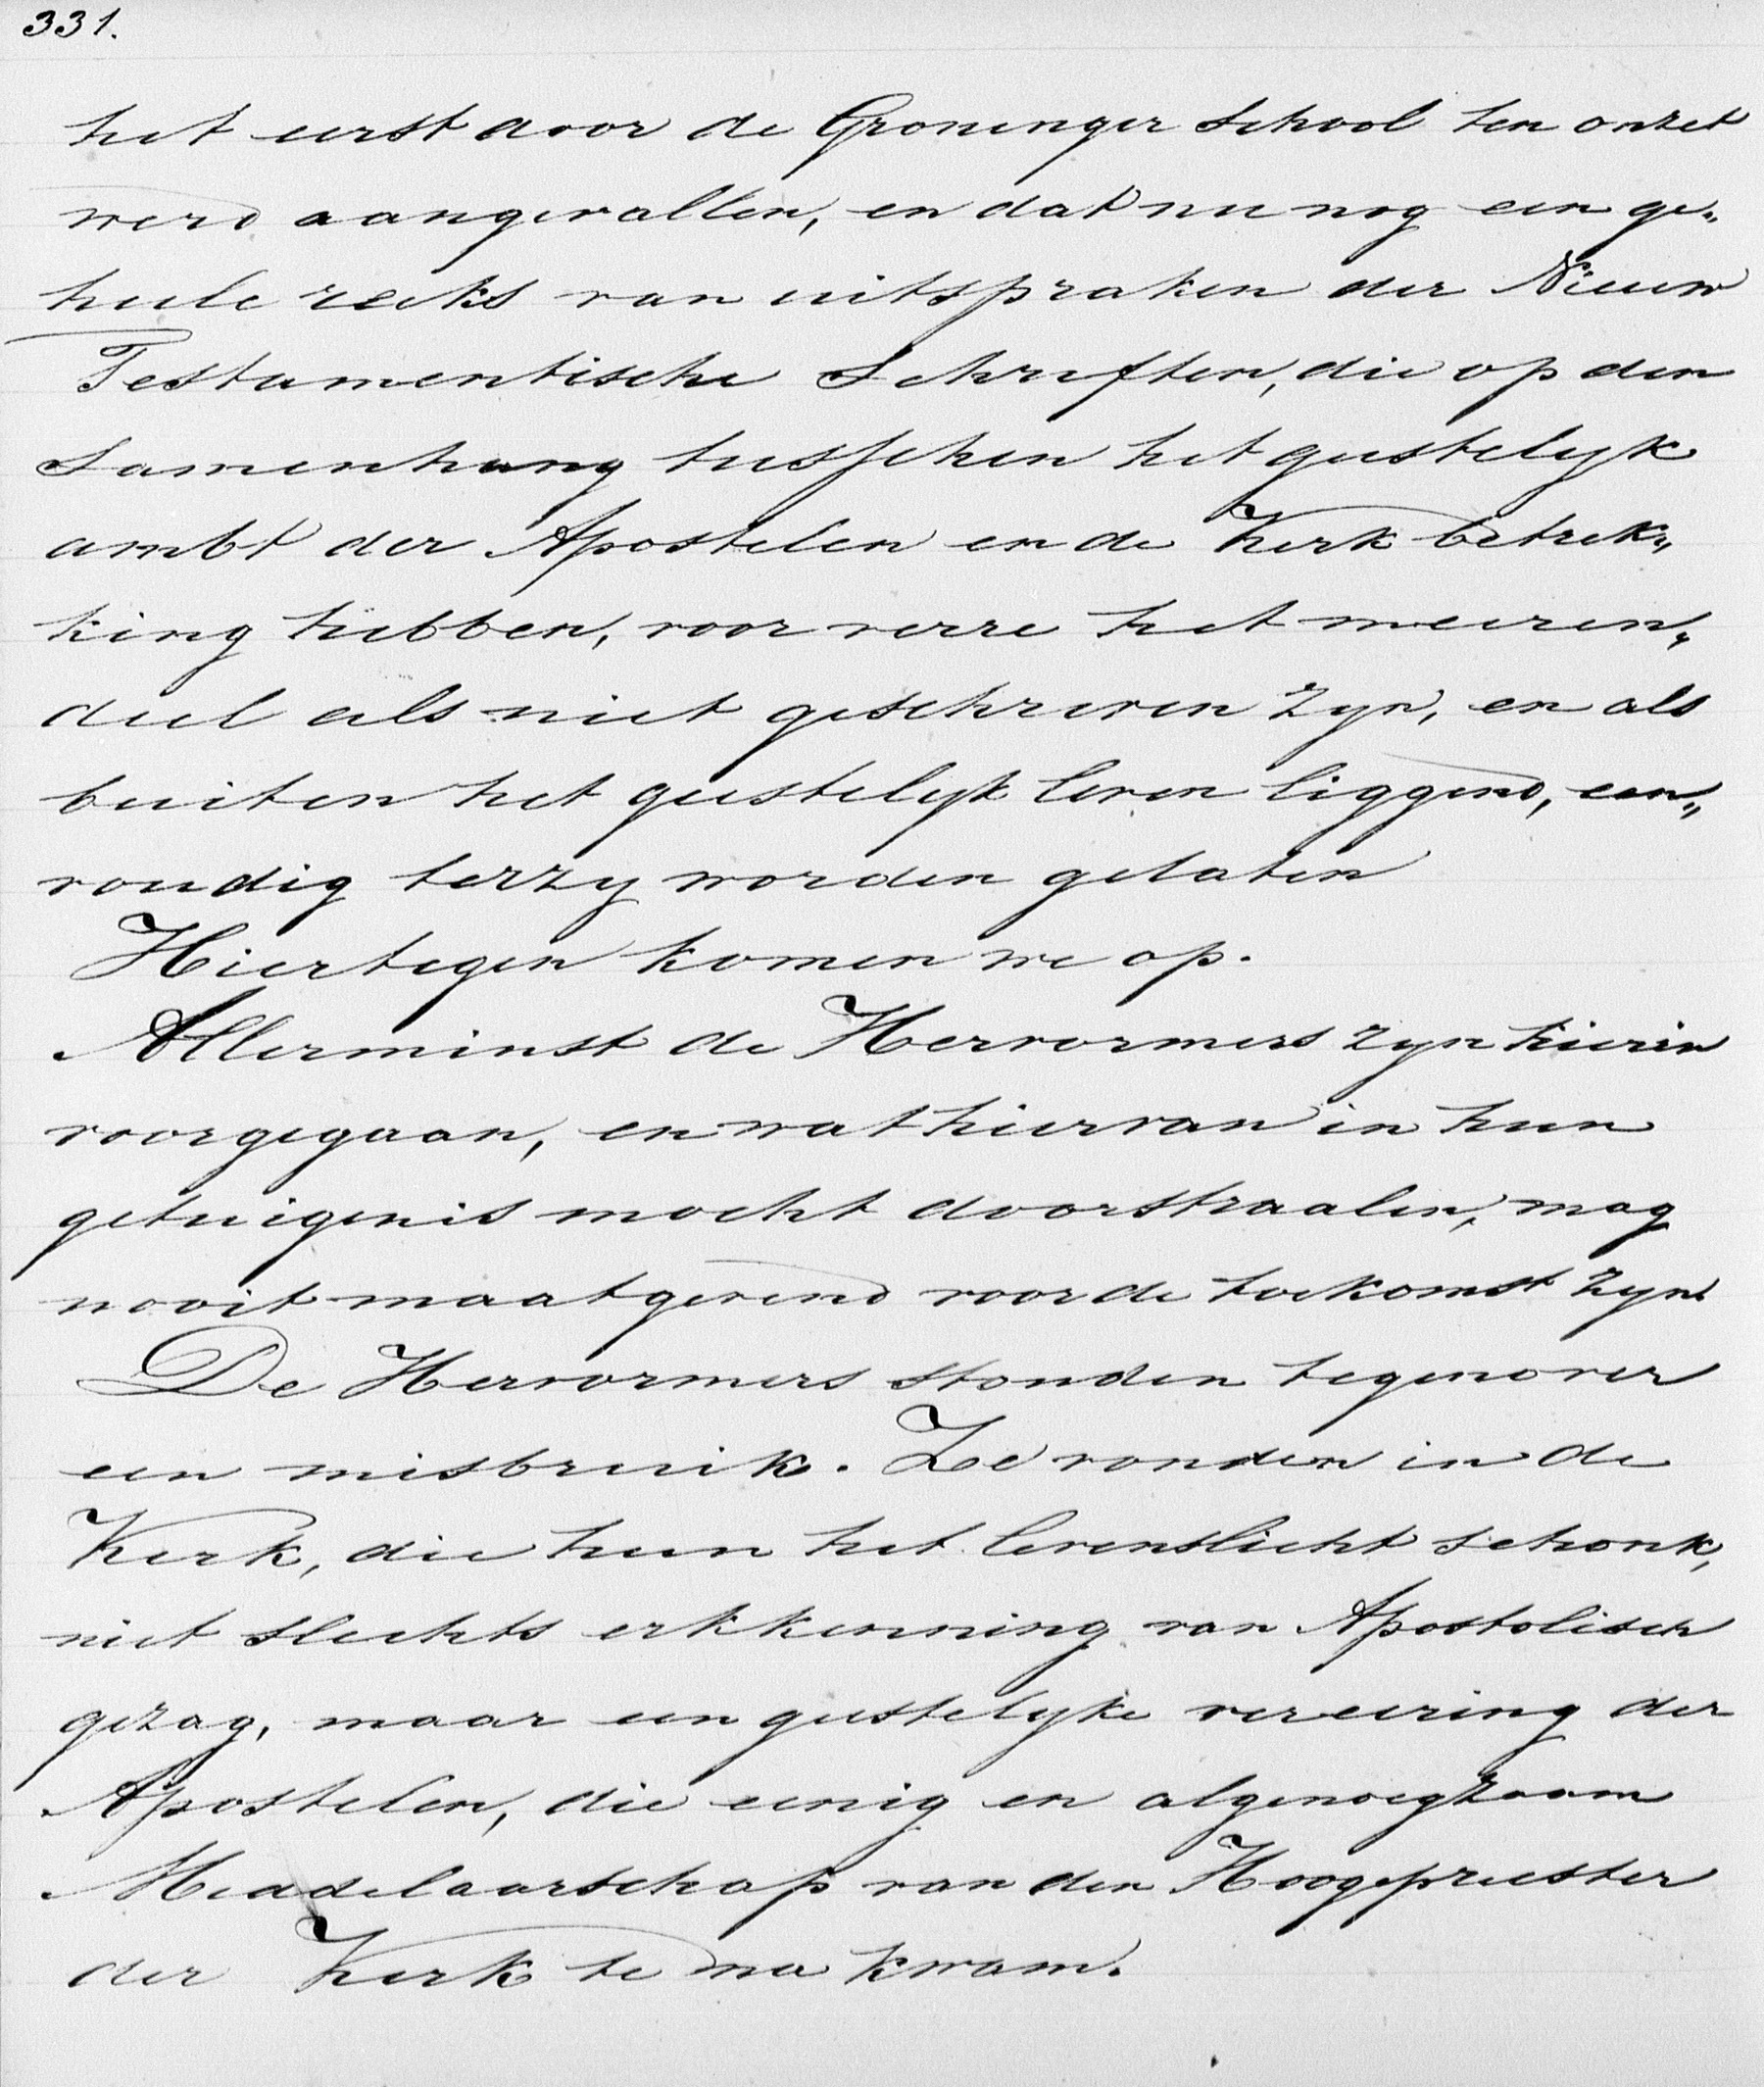 331.
het eerst door de Groninger School ten onzet
werd aangevallen, en dat nu nog een ge„
heele reeks van uitspraken der Nieuw
Testamentische Schriften, die op den
Samenhang tusschen het geestelyk
ambt der Apostelen en de Kerk betrek„
king hebben, voor verre het meeren„
deel als niet geschreven zyn, en als
buiten het geestelyk leven liggend, een„
voudig terzy worden gelaten
Hiertegen komen we op.
Allerminst de Hervormers zyn hierin
voorgegaan, en wat hiervan in hun
getuigenis mocht doorstraalen, mag
nooit maatgevend voor de toekomst zyn.
De Hervormers stonden tegenover
een misbruik. Ze vonden in de
Kerk, die hun het levenslicht schonk,
niet slechts erkkenning van Apostolisch
gezag, maar een geestelyke vereering der
Apostelen, die eenig en algenoegzaam
Meddelaarschap van den Hoogepriester
der Kerk te na kwam.